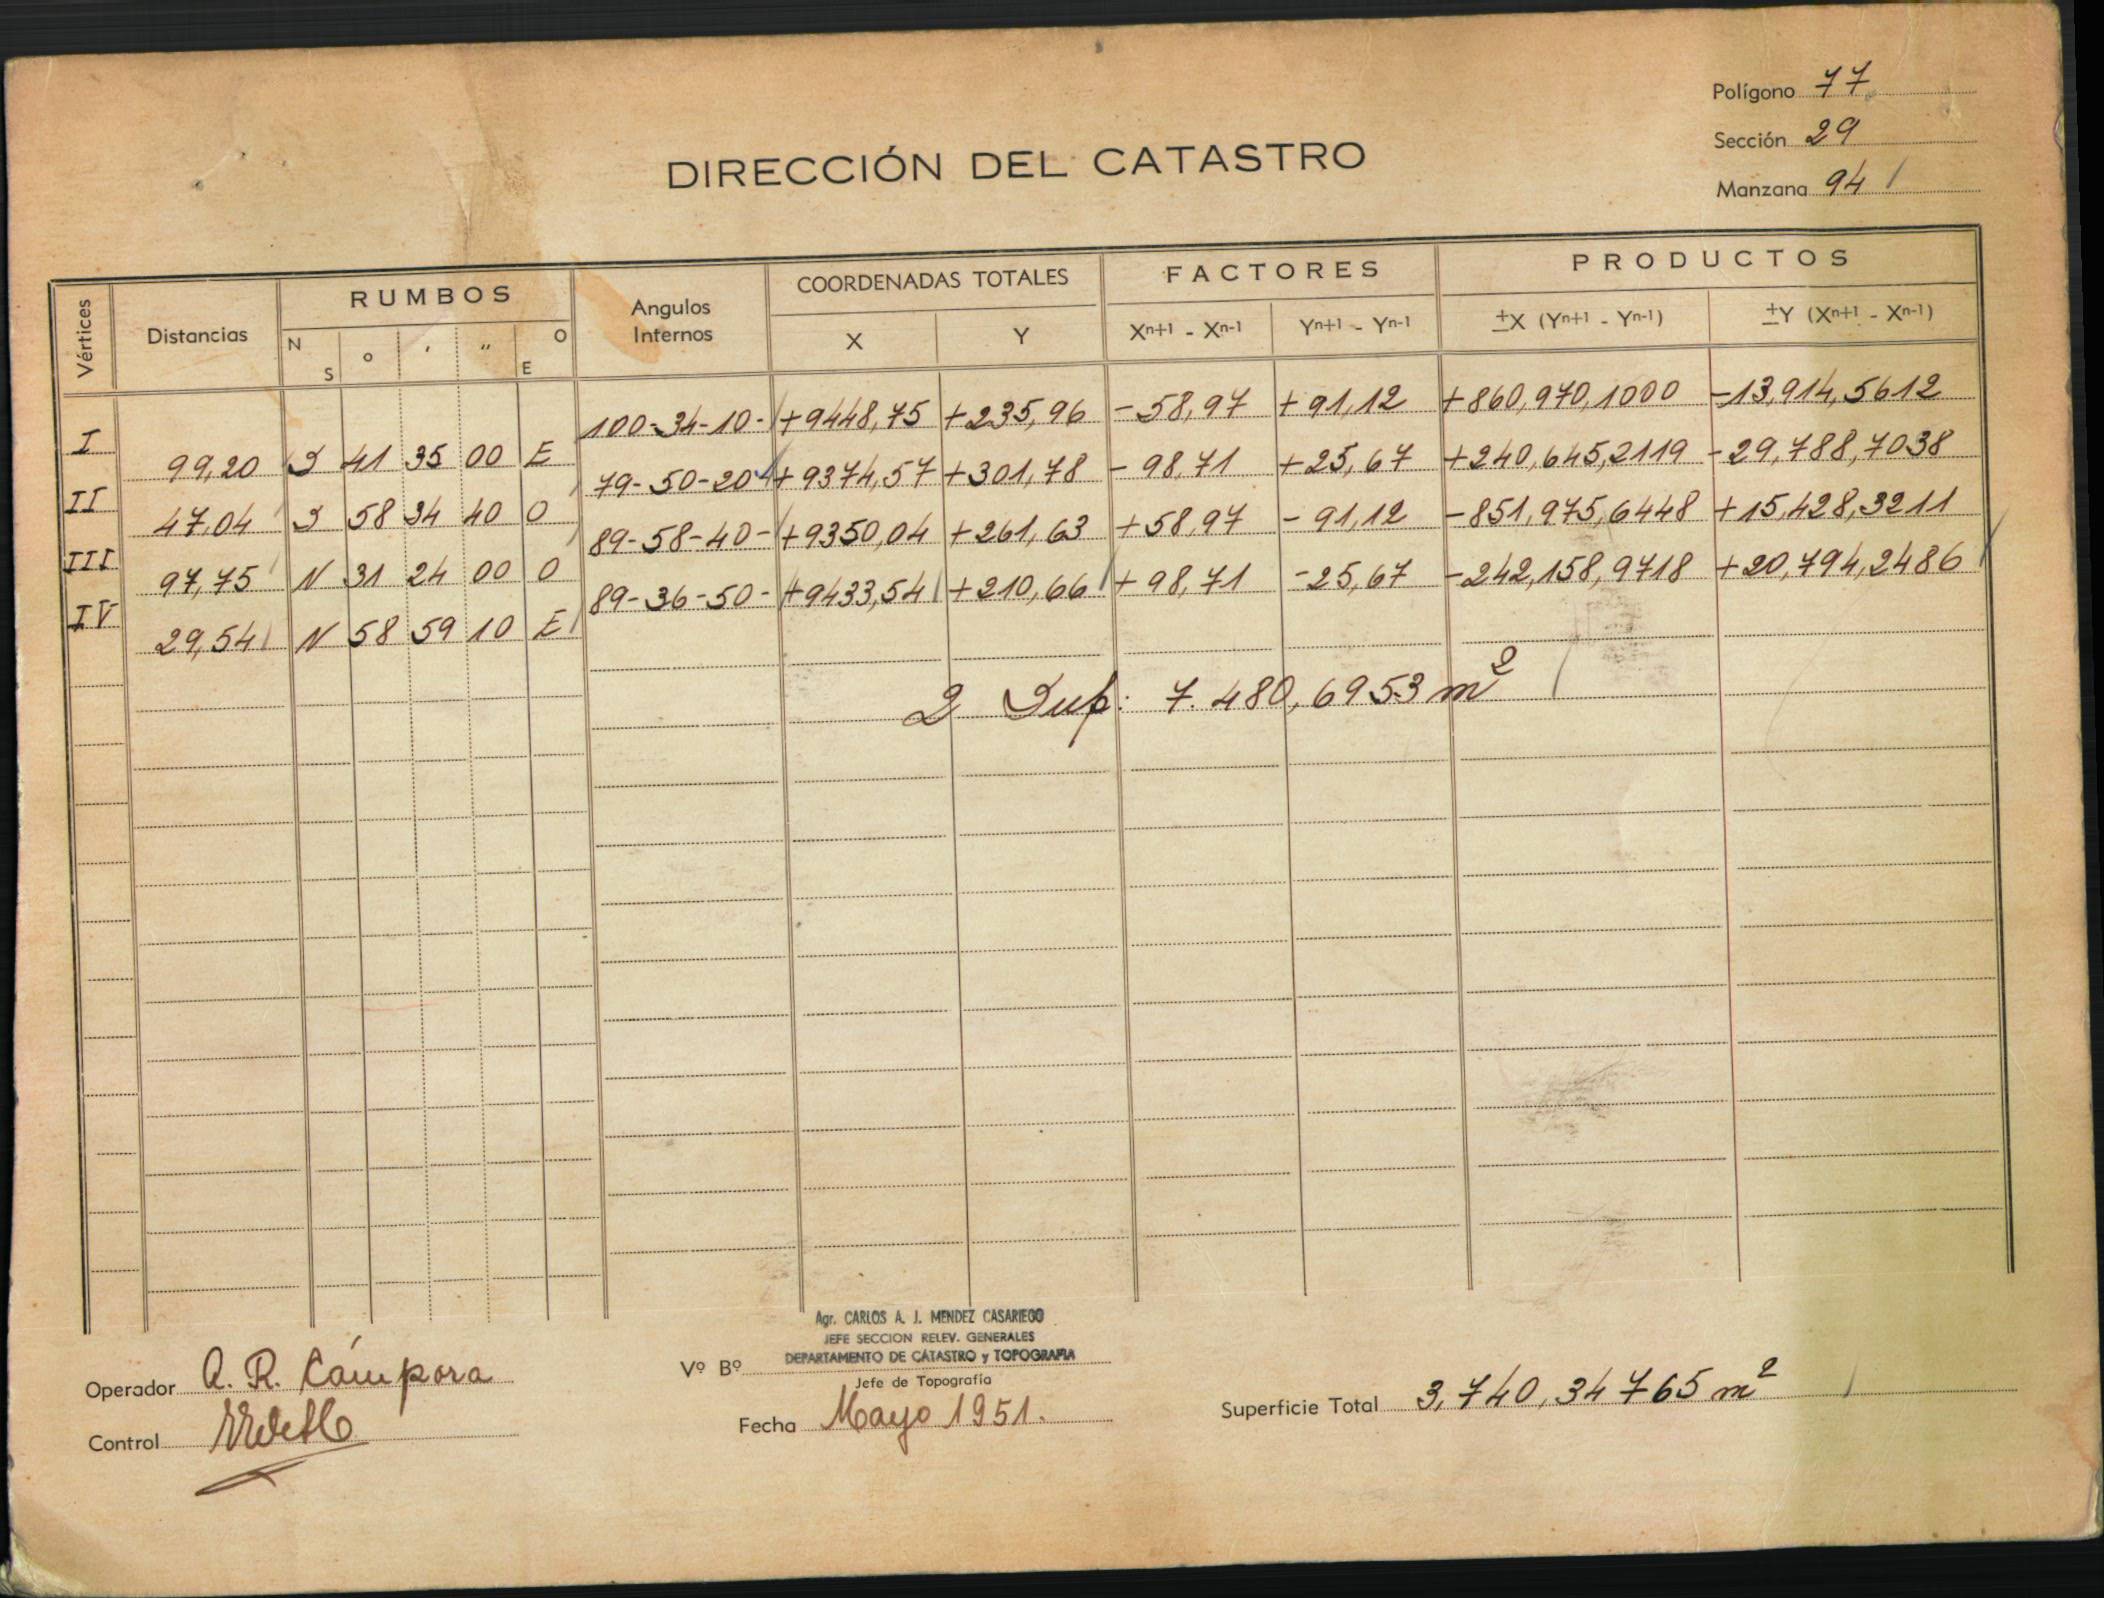 Polígono 77
Sección 29
Manzana 94
DIRECCIÓN DEL CATASTRO
Vértices Distancias RUMBOS N S o ' " E O Angulos Internos COORDENADAS TOTALES X Y FACTORES Xn+1 - Xn-1 Yn+1 - Yn-1 PRODUCTOS ±X (Yn+1 - Yn-1) ±Y (Xn+1 - Xn-1)
I 100-34-10- +9448,75 +235,96 -58,97 +91,12 +860,970,1000 -13,914,5612
99,20 S 41 35 00 E
II 79-50-20 +9374,57 +301,78 -98,71 +25,67 +240,645,2119 -29,788,7038
47,04 S 58 34 40 O
III 89-58-40- +9350,04 +261,63 +58,97 -91,12 -851,975,6448 +15,428,3211
97,75 N 31 24 00 O
IV 89-36-50- +9433,54 +210,66 +98,71 -25,67 -242,158,9718 +20,794,2486
29,54 N 58 59 10 E
2 Sup: 7.480,6953 m²
Agr. CARLOS A. J. MENDEZ CASARIEGO
JEFE SECCION RELEV. GENERALES
DEPARTAMENTO DE CATASTRO y TOPOGRAFIA
Operador A. R. Cámpora
Vº Bº
Jefe de Topografía
Control
Fecha Mayo 1951.
Superficie Total 3,740,34765 m²